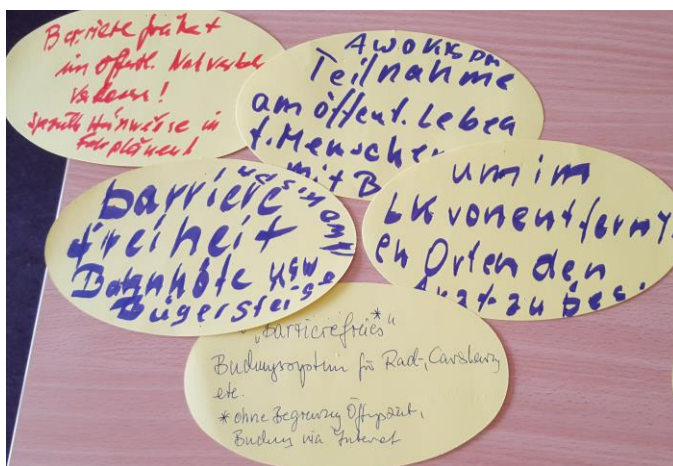 Barrierefreiheit
im öffentl. Nahverkehr
verbessern!
spezielle Hinweise in
Fahrplänen!
Teilnahme
am öffent. Leben
f. Menschen
mit B
barriere
freiheit
Bahnhöfe usw
Bügersteige
um im
LK von entfernt
en Orten den
Arzt zu
"Barrierefreies*"
Buchungssystem für Rad-, Carsharing
etc.
*ohne Begrenzung Öffnungszeit,
Buchung via Internet